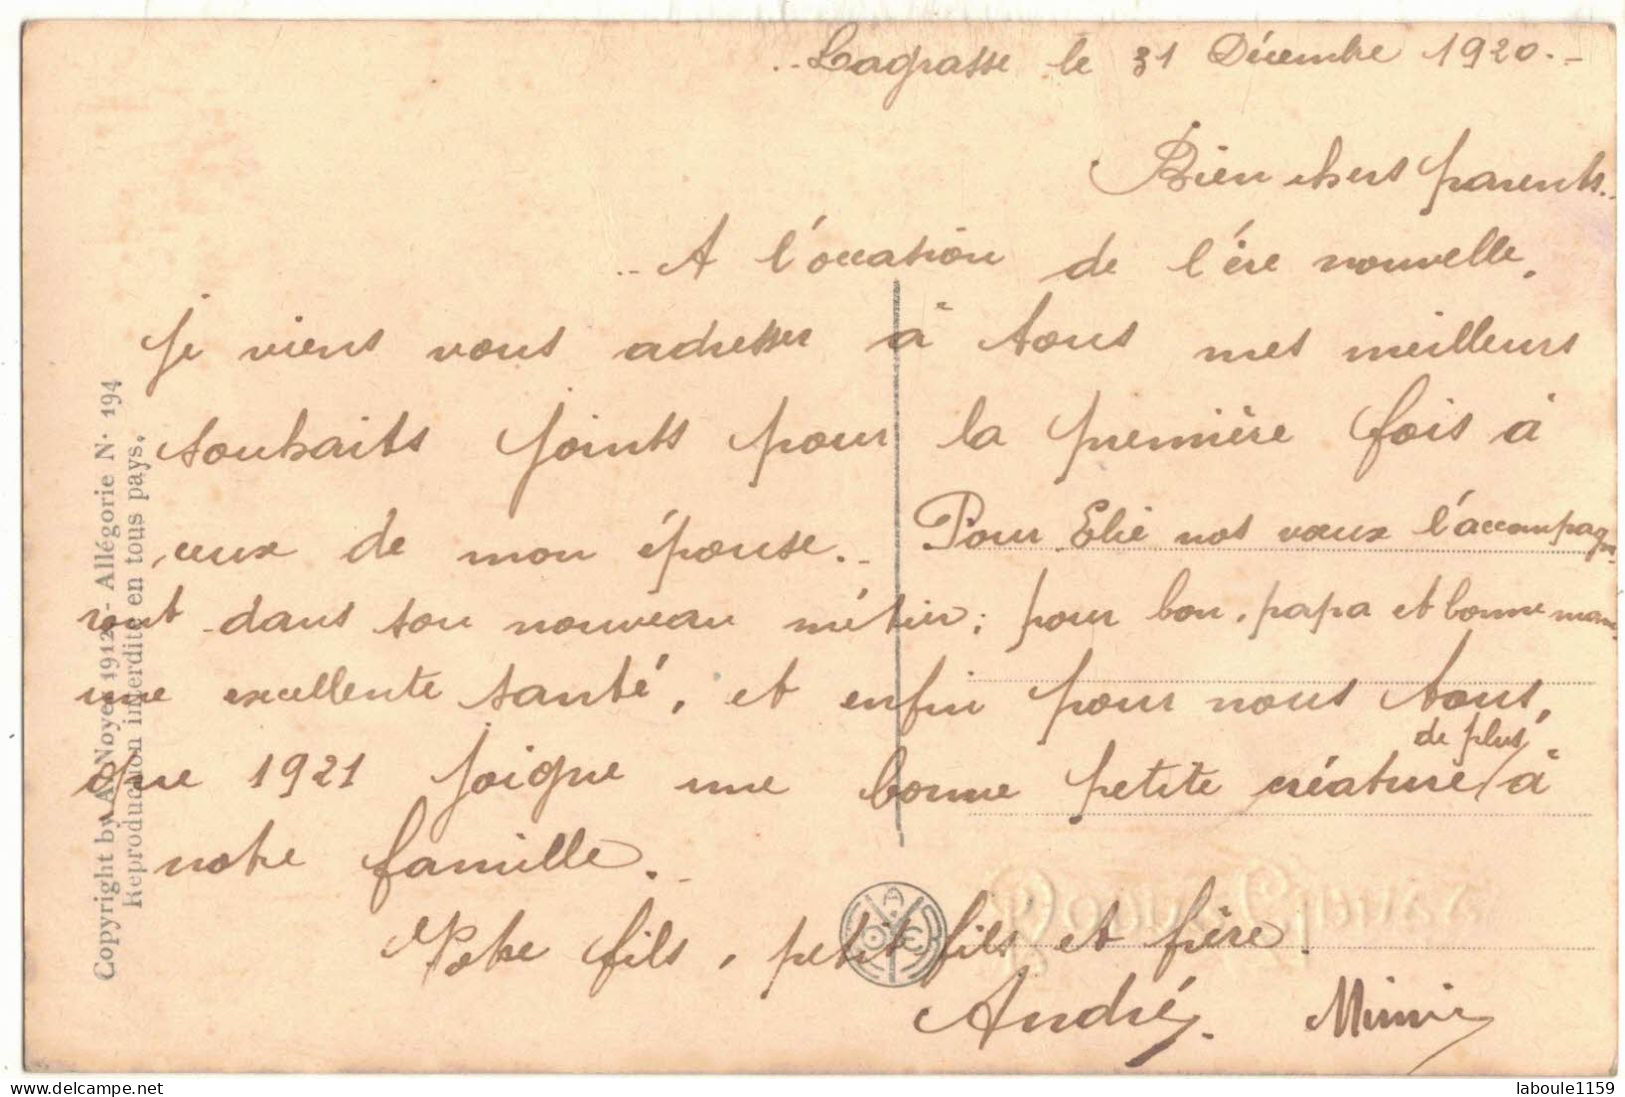 Lagrasse le 31 Décembre 1920.-
Bien chers parents..
A l'occasion de l'ére nouvelle,
je viens vous adresser à tous mes meilleurs
souhaits joints pour la première fois à
ceux de mon épouse.. Pour Elie nos voeux l'accompagne
ront dans son nouveau métier; pour bon.papa et bonne maman
une excellente santé, et enfin pour nous tous,
de plus
que 1921 joigne une bonne petite créature / à
notre famille..
Votre fils, petit fils et frère.
André. Mimi
Copyright by A. Noyer 1912.- Allégorie N. 194
Reproduction interdite en tous pays.
Bonne Année
delcampe.net
laboule1159